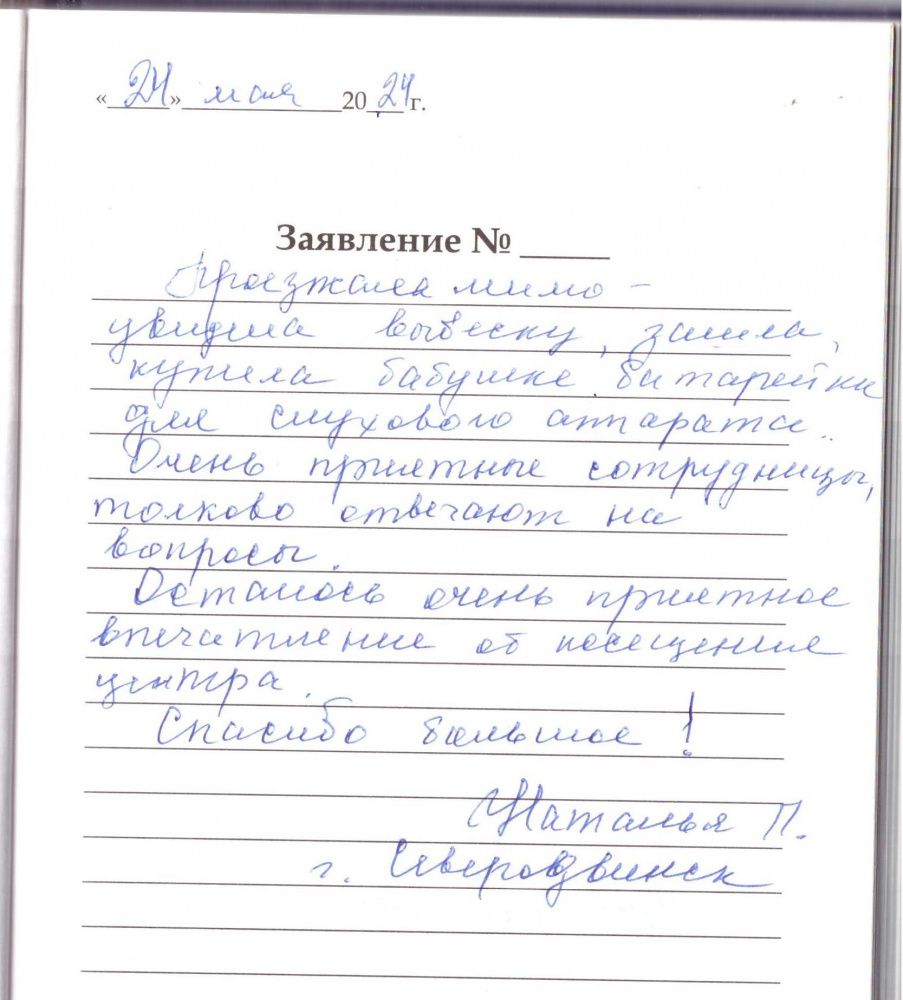 «24» мая 2024г.
Заявление № ____
Проезжала мимо -
увидела вывеску, зашла,
купила бабушке батарейки
для слухового аппарата.
Очень приятные сотрудницы,
толково отвечают на
вопросы.
Осталось очень приятное
впечатление от посещение
центра.
Спасибо большое!
Наталья П.
г. Северодвинск